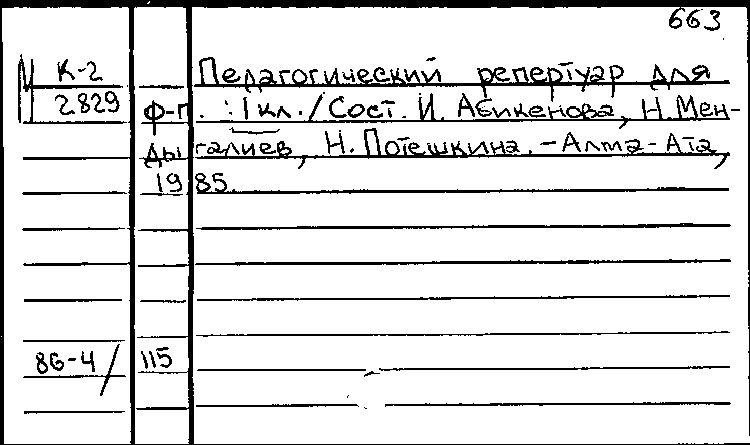 663
М К-2 Педагогический репертуар для
2829 ф-п. : 1 кл. / Сост. И. Абикенова, Н. Мен-
дыгалиев, Н. Потешкина. - Алма-Ата,
1985.
86-4/115